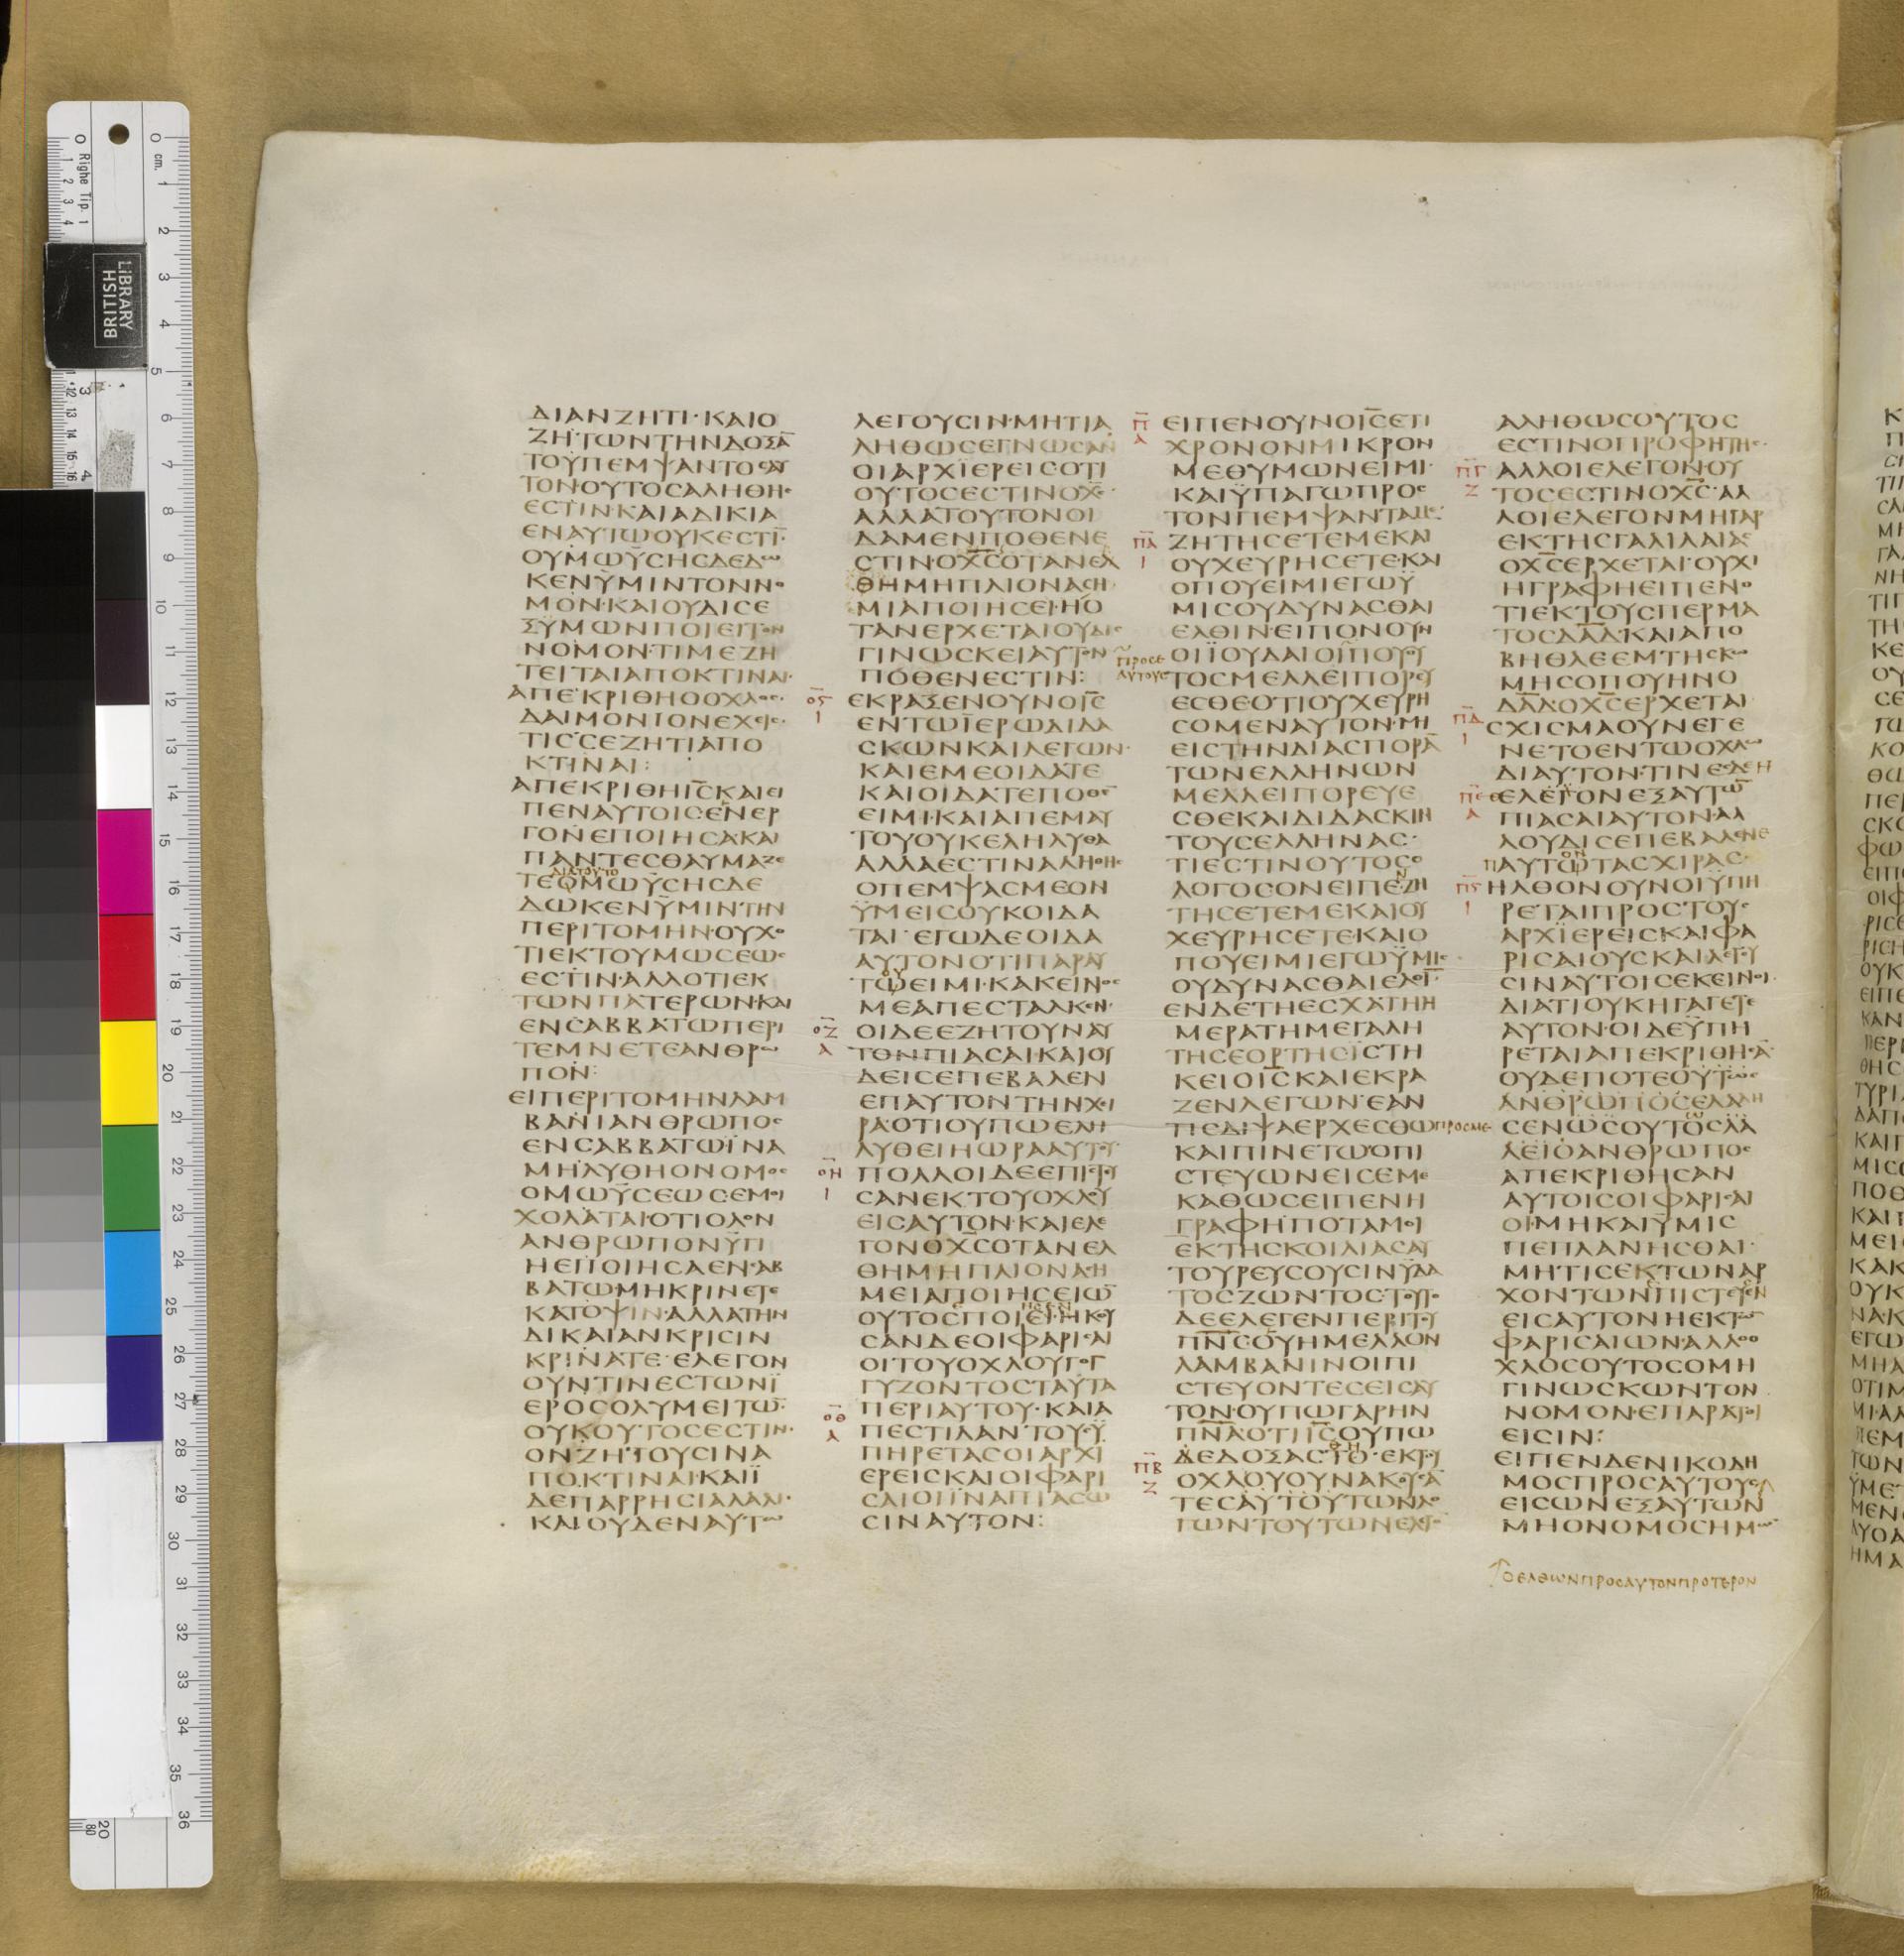 ΔΙΑΝΖΗΤΙ·ΚΑΙΟ
ΖΗΤΩΝΤΗΝΔΟΞΑ̅
ΤΟΥΠΕΜΨΑΝΤΟΣΑΥ
ΤΟΝ·ΟΥΤΟΣΑΛΗΘΗΣ
ΕΣΤΙΝ·ΚΑΙΑΔΙΚΙΑ
ΕΝΑΥΤΩΟΥΚΕΣΤΙ̅·
ΟΥΜΩΫΣΗΣΔΕΔΩ
ΚΕΝΫΜΙΝΤΟΝΝΟ
ΜΟΝ·ΚΑΙΟΥΔΙΣΕ
ΞΫΜΩΝΠΟΙΕΙΤΟΝ
ΝΟΜΟΝ·ΤΙΜΕΖΗ
ΤΕΙΤΑΙΑΠΟΚΤΙΝΑΙ·
ΑΠΕΚΡΙΘΗΟΟΧΛΟΣ·
ΔΑΙΜΟΝΙΟΝΕΧΕΙΣ·
ΤΙΣΣΕΖΗΤΙΑΠΟ
ΚΤΙΝΑΙ:
ΑΠΕΚΡΙΘΗΙ̅Σ̅ΚΑΙΕΙ
ΠΕΝΑΥΤΟΙΣ·ΕΝΕΡ
ΓΟΝΕΠΟΙΗΣΑ·ΚΑΙ
ΠΑΝΤΕΣΘΑΥΜΑΖΕ
ΔΙΑΤΟΥΤΟ
ΤΕΟΜΩΫΣΗΣΔΕ
ΔΩΚΕΝΫΜΙΝΤΗΝ
ΠΕΡΙΤΟΜΗΝ·ΟΥΧΟ
ΤΙΕΚΤΟΥΜΩΣΕΩΣ
ΕΣΤΙΝ·ΑΛΛΟΤΙΕΚ
ΤΩΝΠΑΤΕΡΩΝ·ΚΑΙ
ΕΝΣΑΒΒΑΤΩΠΕΡΙ
ΤΕΜΝΕΤΕΑΝΘΡΩ
ΠΟΝ:
ΕΙΠΕΡΙΤΟΜΗΝΛΑΜ
ΒΑΝΙΑΝΘΡΩΠΟΣ
ΕΝΣΑΒΒΑΤΩΪΝΑ
ΜΗΛΥΘΗΟΝΟΜΟΣ
ΟΜΩΫΣΕΩΣΕΜΟΙ
ΧΟΛΑΤΑΙ·ΟΤΙΟΛΟΝ
ΑΝΘΡΩΠΟΝΫΓΙ
ΗΕΠΟΙΗΣΑΕΝΣΑΒ
ΒΑΤΩ·ΜΗΚΡΙΝΕΤΕ
ΚΑΤΟΨΙΝ·ΑΛΛΑΤΗΝ
ΔΙΚΑΙΑΝΚΡΙΣΙΝ
ΚΡΙΝΑΤΕ·ΕΛΕΓΟΝ
ΟΥΝΤΙΝΕΣΤΩΝΪ
ΕΡΟΣΟΛΥΜΕΙΤΩ̅:
ΟΥΚΟΥΤΟΣΕΣΤΙΝ·
ΟΝΖΗΤΟΥΣΙΝΑ
ΠΟΚΤΙΝΑΙ·ΚΑΙΪ
ΔΕΠΑΡΡΗΣΙΑΛΑΛΙ·
ΚΑΙΟΥΔΕΝΑΥΤΩ
ΛΕΓΟΥΣΙΝ·ΜΗΤΙΑ
ΛΗΘΩΣΕΓΝΩΣΑΝ
ΟΙΑΡΧΪΕΡΕΙΣΟΤΙ
ΟΥΤΟΣΕΣΤΙΝΟΧ̅Σ̅·
ΑΛΛΑΤΟΥΤΟΝΟΙ
ΔΑΜΕΝΠΟΘΕΝΕ
ΣΤΙΝ·ΟΧ̅Σ̅ΟΤΑΝΕΛ
ΘΗΜΗΠΛΙΟΝΑΣΗ
ΜΙΑΠΟΙΗΣΕΙ·ΗΟ
ΤΑΝΕΡΧΕΤΑΙΟΥΔΙΣ
ΓΙΝΩΣΚΕΙΑΥΤΟΝ
ΠΟΘΕΝΕΣΤΙΝ:
Ο̅Ϛ̅
Ι
ΕΚΡΑΞΕΝΟΥΝΟΙ̅Σ̅
ΕΝΤΩΪΕΡΩΔΙΔΑ
ΣΚΩΝΚΑΙΛΕΓΩΝ·
ΚΑΙΕΜΕΟΙΔΑΤΕ
ΚΑΙΟΙΔΑΤΕΠΟΘΕ̅
ΕΙΜΙ·ΚΑΙΑΠΕΜΑΥ
ΤΟΥΟΥΚΕΛΗΛΥΘΑ
ΑΛΛΑΕΣΤΙΝΑΛΗΘΗΣ
ΟΠΕΜΨΑΣΜΕΟΝ
ΫΜΕΙΣΟΥΚΟΙΔΑ
ΤΑΙ·ΕΓΩΔΕΟΙΔΑ
ΑΥΤΟΝΟΤΙΠΑΡΑΥ
ΟΥ
ΤΩΕΙΜΙ·ΚΑΚΕΙΝΟΣ
ΜΕΑΠΕΣΤΑΛΚΕΝ·
Ο̅Ζ̅
Α
ΟΙΔΕΕΖΗΤΟΥΝΑΥ
ΤΟΝΠΙΑΣΑΙ·ΚΑΙΟΥ
ΔΕΙΣΕΠΕΒΑΛΕΝ
ΕΠΑΥΤΟΝΤΗΝΧΙ
ΡΑΟΤΙΟΥΠΩΕΛΗ
ΛΥΘΕΙΗΩΡΑΑΥΤΟΥ
Ο̅Η̅
Ι
ΠΟΛΛΟΙΔΕΕΠΙΣΤΕΥ
ΣΑΝΕΚΤΟΥΟΧΛΟΥ
ΕΙΣΑΥΤΟΝ·ΚΑΙΕΛΕ
ΓΟΝΟΧ̅Σ̅ΟΤΑΝΕΛ
ΘΗΜΗΠΛΙΟΝΑΣΗ
ΜΕΙΑΠΟΙΗΣΕΙΩ̅
ΟΥΤΟΣΠΟΙΕΙ·ΗΚΟΥ
ΣΑΝΔΕΟΙΦΑΡΙΣΑΙ
ΟΙΤΟΥΟΧΛΟΥΓΟΓ
ΓΥΖΟΝΤΟΣΤΑΥΤΑ
Ο̅Θ̅
Α
ΠΕΡΙΑΥΤΟΥ·ΚΑΙΑ
ΠΕΣΤΙΛΑΝΤΟΥΣΫ
ΠΗΡΕΤΑΣΟΙΑΡΧΙ
ΕΡΕΙΣΚΑΙΟΙΦΑΡΙ
ΣΑΙΟΙΪΝΑΠΙΑΣΩ
ΣΙΝΑΥΤΟΝ:
Π̅
Α
ΕΙΠΕΝΟΥΝΟΙ̅Σ̅ΕΤΙ
ΧΡΟΝΟΝΜΙΚΡΟΝ
ΜΕΘΥΜΩΝΕΙΜΙ·
ΚΑΙΫΠΑΓΩΠΡΟΣ
ΤΟΝΠΕΜΨΑΝΤΑΜΕ·
Π̅Α̅
Ι
ΖΗΤΗΣΕΤΕΜΕΚΑΙ
ΟΥΧΕΥΡΗΣΕΤΕ·ΚΑΙ
ΟΠΟΥΕΙΜΙΕΓΩΫ
ΜΙΣΟΥΔΥΝΑΣΘΑΙ
ΕΛΘΙΝ·ΕΙΠΟΝΟΥΝ
ΟΙΪΟΥΔΑΙΟΙΠΟΥΟΥ
ΠΡΟΣΕ
ΑΥΤΟΥΣ
ΤΟΣΜΕΛΛΕΙΠΟΡΕΥ
ΕΣΘΕ·ΟΤΙΟΥΧΕΥΡΗ
ΣΟΜΕΝΑΥΤΟΝ·ΜΗ
ΕΙΣΤΗΝΔΙΑΣΠΟΡΑ̅
ΤΩΝΕΛΛΗΝΩΝ
ΜΕΛΛΕΙΠΟΡΕΥΕ
ΣΘΕΚΑΙΔΙΔΑΣΚΙΝ
ΤΟΥΣΕΛΛΗΝΑΣ·
ΤΙΕΣΤΙΝΟΥΤΟΣΟ
ΛΟΓΟΣΟΝΕΙΠΕ·ΖΗ
ΤΗΣΕΤΕΜΕΚΑΙΟΥ
ΧΕΥΡΗΣΕΤΕ·ΚΑΙΟ
ΠΟΥΕΙΜΙΕΓΩΫΜΙΣ
ΟΥΔΥΝΑΣΘΑΙΕΛΘΙ̅·
ΕΝΔΕΤΗΕΣΧΑΤΗΗ
ΜΕΡΑΤΗΜΕΓΑΛΗ
ΤΗΣΕΟΡΤΗΣΙΣΤΗ
ΚΕΙΟΙ̅Σ̅ΚΑΙΕΚΡΑ
ΖΕΝΛΕΓΩΝ·ΕΑΝ
ΤΙΣΔΙΨΑΕΡΧΕΣΘΩ
ΠΡΟΣΜΕ
ΚΑΙΠΙΝΕΤΩΟΠΙ
ΣΤΕΥΩΝΕΙΣΕΜΕ
ΚΑΘΩΣΕΙΠΕΝΗ
ΓΡΑΦΗΠΟΤΑΜΟΙ
ΕΚΤΗΣΚΟΙΛΙΑΣΑΥ
ΤΟΥΡΕΥΣΟΥΣΙΝΫΔΑ
ΤΟΣΖΩΝΤΟΣ·ΤΟΥΤΟ
ΔΕΕΛΕΓΕΝΠΕΡΙΤΟΥ
Π̅Ν̅Σ̅ΟΥΗΜΕΛΛΟΝ
ΛΑΜΒΑΝΙΝΟΙΠΙ
ΣΤΕΥΟΝΤΕΣΕΙΣΑΥ
ΤΟΝ·ΟΥΠΩΓΑΡΗΝ
Π̅Ν̅Α̅ΟΤΙΙ̅Σ̅ΟΥΠΩ
ΔΕΔΟΞΑΣΤΟ·ΕΚΤΟΥ
Π̅Β̅
Ζ
ΟΧΛΟΥΟΥΝΑΚΟΥΣΑ̅
ΤΕΣΑΥΤΟΥΤΩΝΛΟ
ΓΩΝΤΟΥΤΩΝΕΛΕΓΟ̅
ΑΛΗΘΩΣΟΥΤΟΣ
ΕΣΤΙΝΟΠΡΟΦΗΤΗΣ·
Π̅Γ̅
Ζ
ΑΛΛΟΙΕΛΕΓΟΝΟΥ
ΤΟΣΕΣΤΙΝΟΧ̅Σ̅·ΑΛ
ΛΟΙΕΛΕΓΟΝΜΗΓΑΡ
ΕΚΤΗΣΓΑΛΙΛΑΙΑΣ
ΟΧ̅Σ̅ΕΡΧΕΤΑΙ·ΟΥΧΙ
ΗΓΡΑΦΗΕΙΠΕΝΟ
ΤΙΕΚΤΟΥΣΠΕΡΜΑ
ΤΟΣΔ̅Α̅Δ̅·ΚΑΙΑΠΟ
ΒΗΘΛΕΕΜΤΗΣΚΩ
ΜΗΣΟΠΟΥΗΝΟ
Δ̅Α̅Δ̅·ΟΧ̅Σ̅ΕΡΧΕΤΑΙ
Π̅Δ̅
Ι
ΣΧΙΣΜΑΟΥΝΕΓΕ
ΝΕΤΟΕΝΤΩΟΧΛΩ
ΔΙΑΥΤΟΝ·ΤΙΝΕΣΔΕΗ
Π̅Ε̅
Α
ΘΕΛΕΓΟΝΕΞΑΥΤΩ̅
ΠΙΑΣΑΙΑΥΤΟΝ·ΑΛ
ΛΟΥΔΙΣΕΠΕΒΑΛΕΝΕ
ΠΑΥΤΩΤΑΣΧΙΡΑΣ·
Π̅Ϛ̅
Ι
ΗΛΘΟΝΟΥΝΟΙΫΠΗ
ΡΕΤΑΙΠΡΟΣΤΟΥΣ
ΑΡΧΪΕΡΕΙΣΚΑΙΦΑ
ΡΙΣΑΙΟΥΣΚΑΙΛΕΓΟΥ
ΣΙΝΑΥΤΟΙΣΕΚΕΙΝΟΙ·
ΔΙΑΤΙΟΥΚΗΓΑΓΕΤΕ
ΑΥΤΟΝ·ΟΙΔΕΫΠΗ
ΡΕΤΑΙΑΠΕΚΡΙΘΗΣΑ̅
ΟΥΔΕΠΟΤΕΟΥΤΩΣ
ΑΝΘΡΩΠΟΣΕΛΑΛΗ
ΣΕΝΩΣΟΥΤΟΣΛΑ
ΛΕΙΟΑΝΘΡΩΠΟΣ
ΑΠΕΚΡΙΘΗΣΑΝ
ΑΥΤΟΙΣΟΙΦΑΡΙΣΑΙ
ΟΙ·ΜΗΚΑΙΫΜΙΣ
ΠΕΠΛΑΝΗΣΘΑΙ·
ΜΗΤΙΣΕΚΤΩΝΑΡ
ΧΟΝΤΩΝΠΙΣΤΕΥΕΙ
ΕΙΣΑΥΤΟΝΗΕΚΤΩ
ΦΑΡΙΣΑΙΩΝ·ΑΛΛΟΟ
ΧΛΟΣΟΥΤΟΣΟΜΗ
ΓΙΝΩΣΚΩΝΤΟΝ
ΝΟΜΟΝ·ΕΠΑΡΑΤΟΙ
ΕΙΣΙΝ:
ΕΙΠΕΝΔΕΝΙΚΟΔΗ
ΜΟΣΠΡΟΣΑΥΤΟΥΣ
ΕΙΣΩΝΕΞΑΥΤΩΝ
ΜΗΟΝΟΜΟΣΗΜΩ
ΟΕΛΘΩΝΠΡΟΣΑΥΤΟΝΠΡΟΤΕΡΟΝ
BRITISH
LIBRARY
Righe Tip. 1
cm.